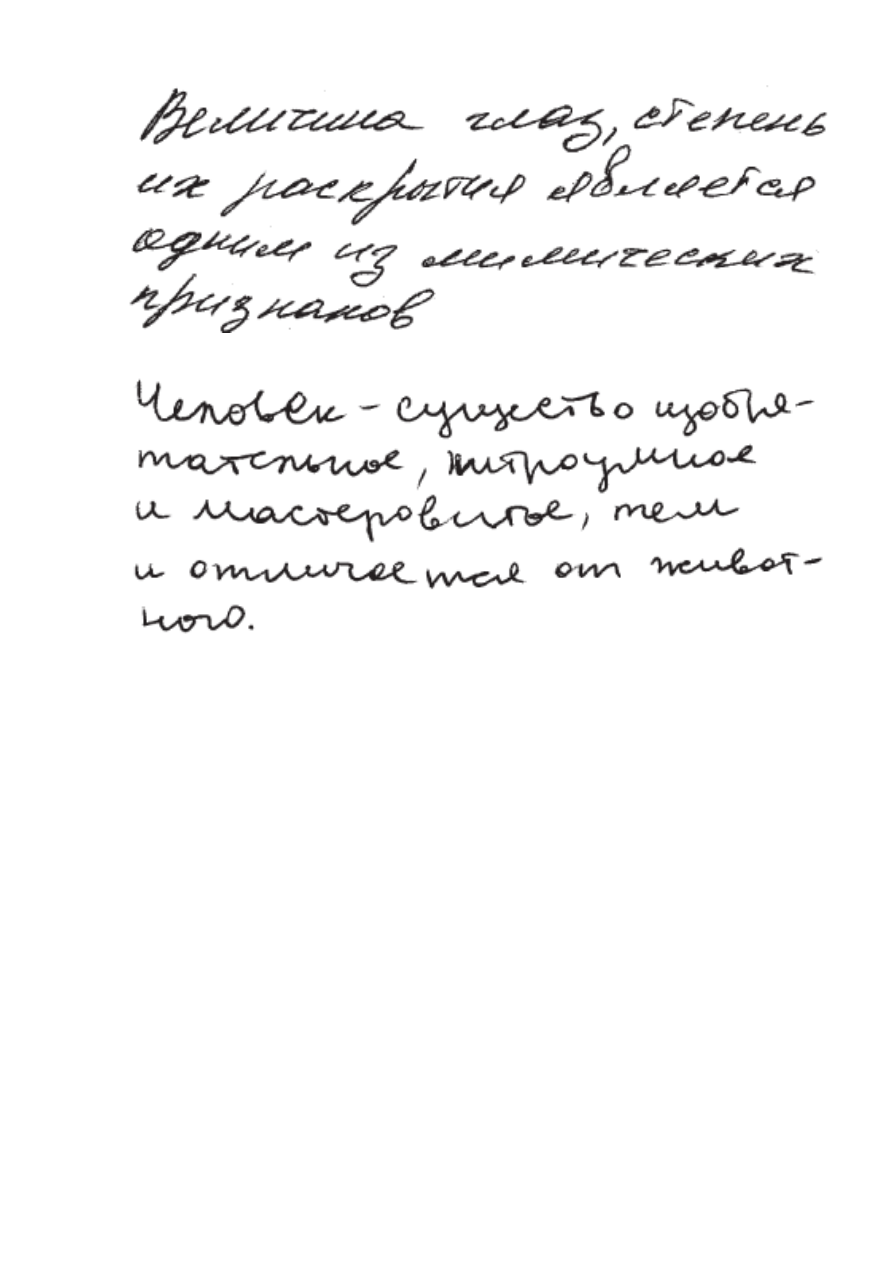 Величина глаз, степень
их раскрытия является
одним из мимических
признаков
Человек - существо изобре-
тательное, хитроумное
и мастеровитое, тем
и отличается от живот-
ного.